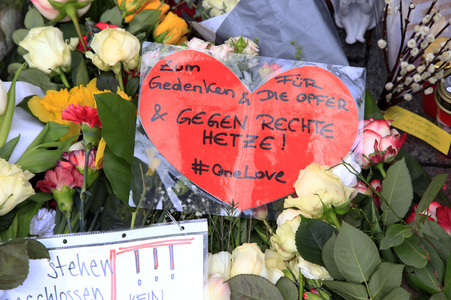 Zum
Gedenken & FÜR
DIE OPFER
& GEGEN RECHTE
HETZE!
#OneLove
stehen !!!
KEIN